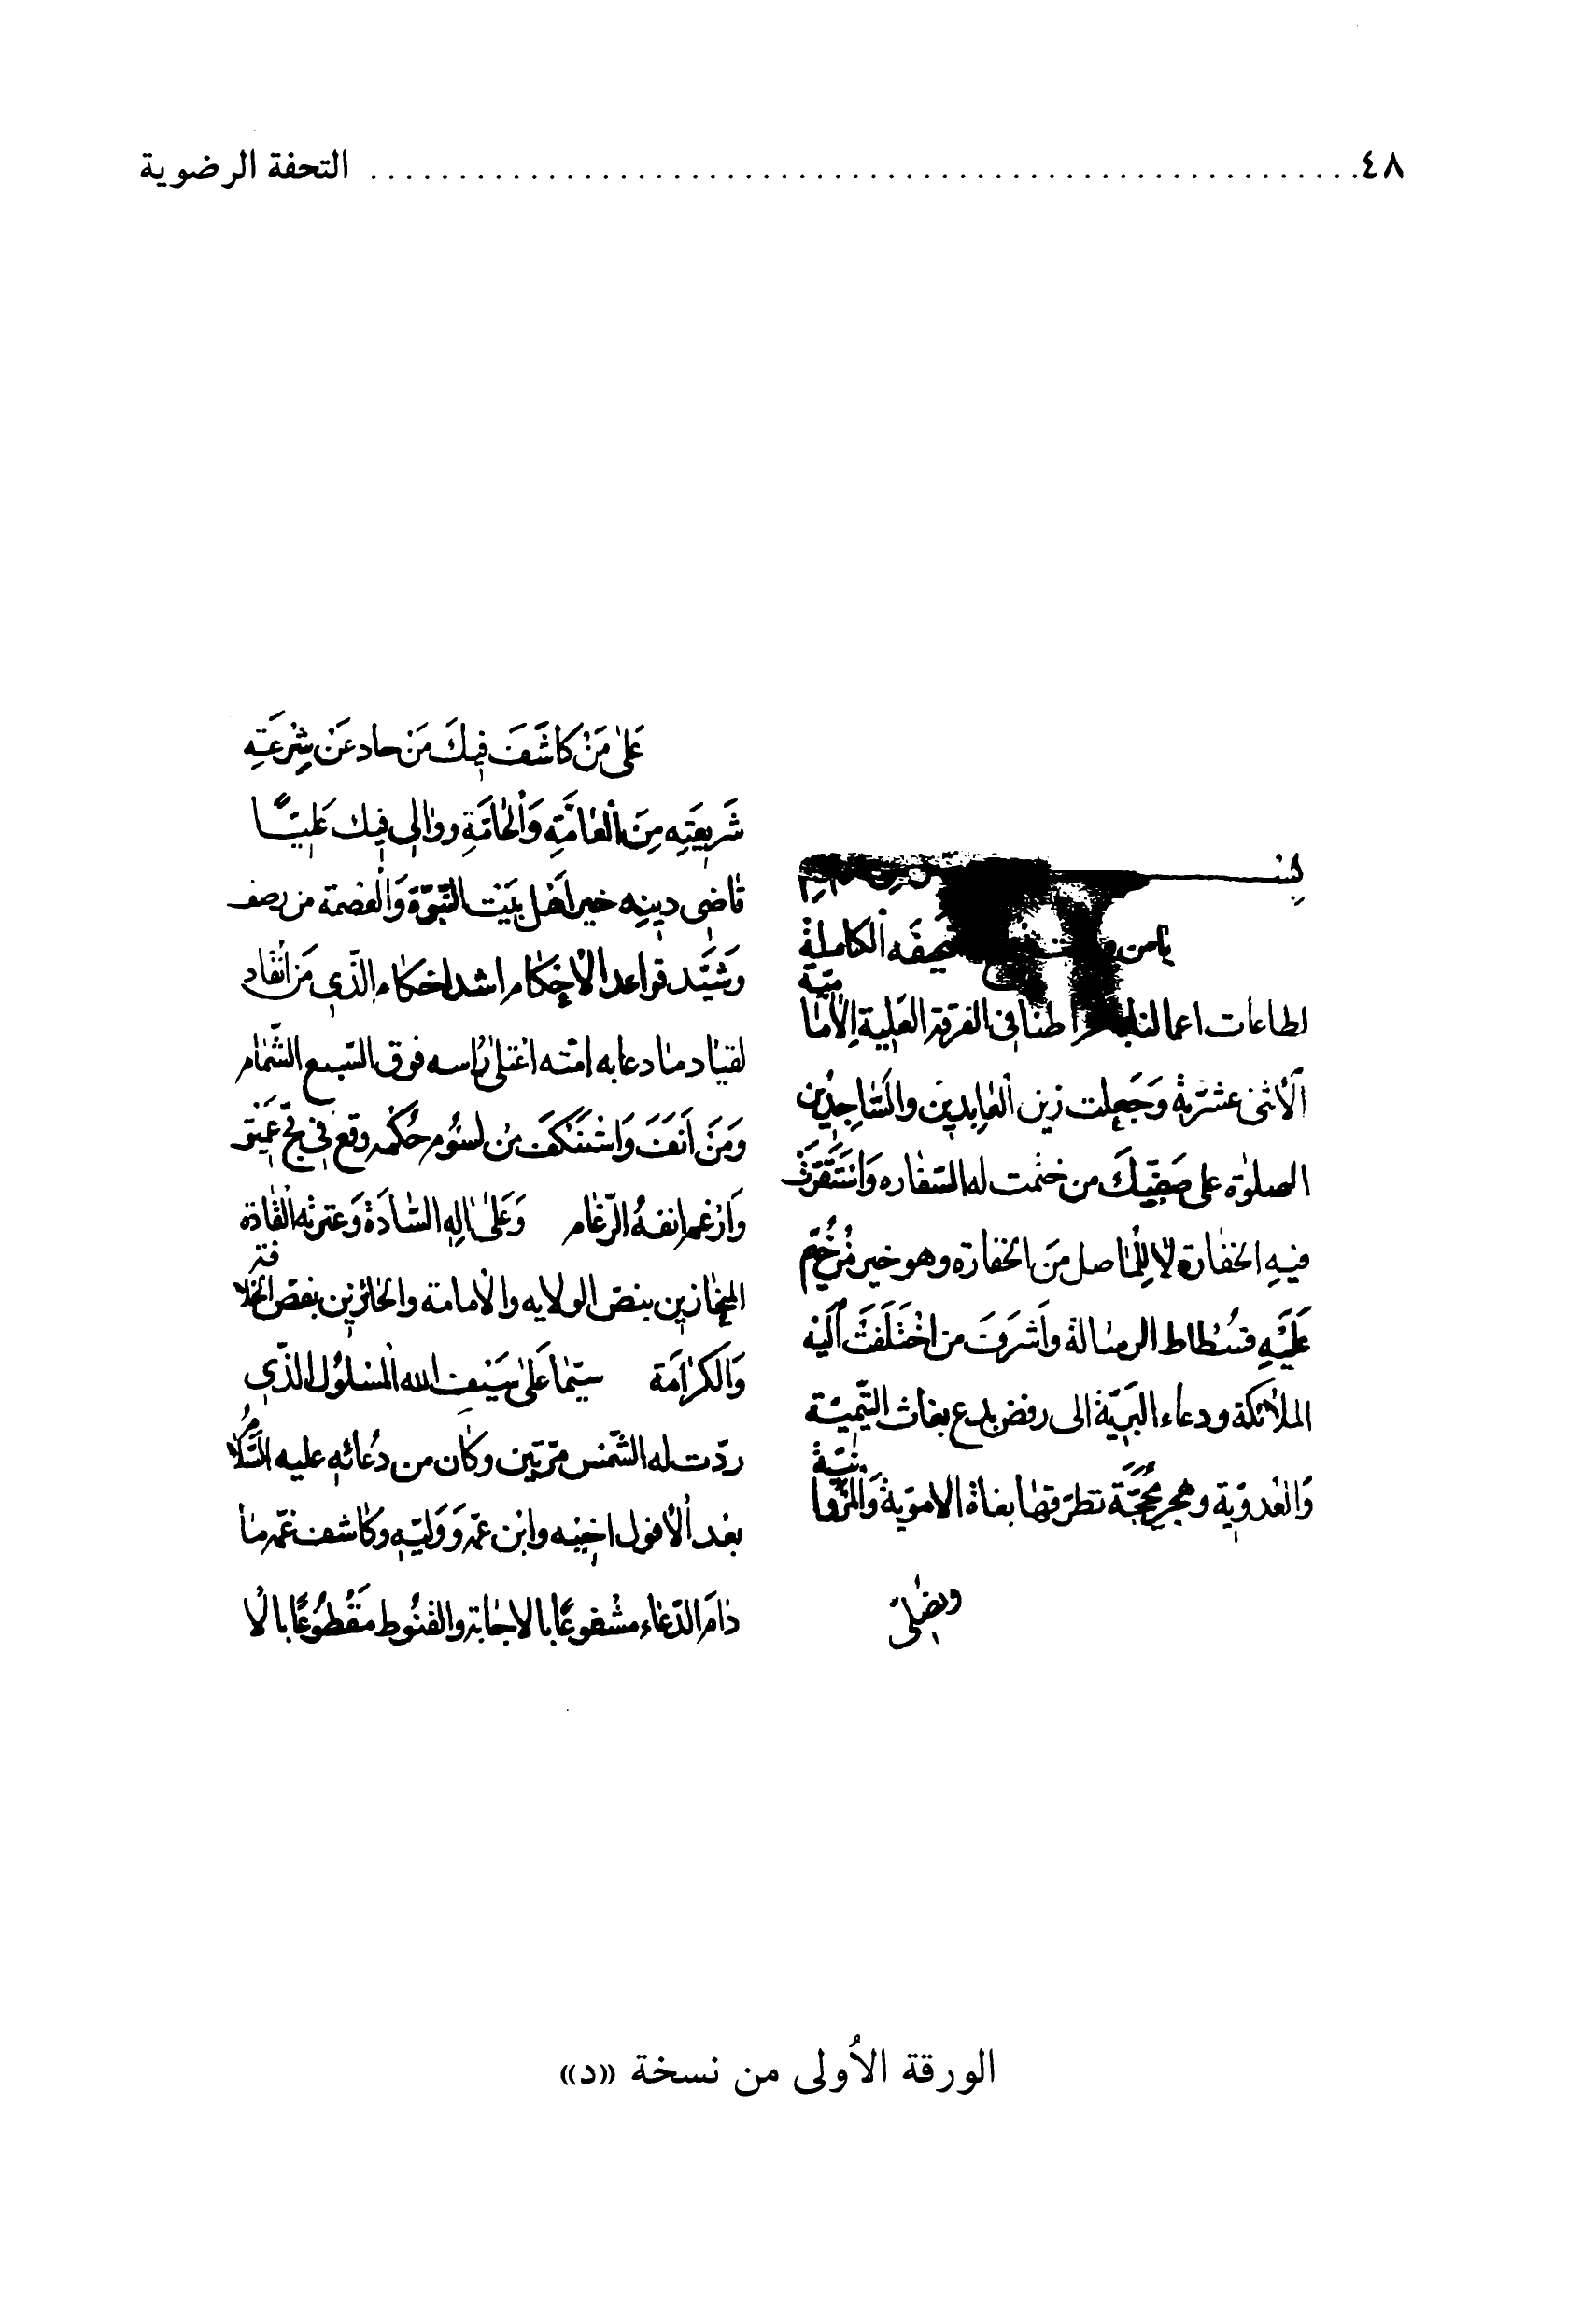 ٤٨ ........ التحفة الرضوية
بسم
يا من الكاملة
لطاعات اعمالنا طنا في الفرقة العلية الإمامية
الاثنى عشرية وجعلت زين العابدين والساجدين
الصلوة على صفيك من ختمت له السفاره واستقرت
فيه الخفارة من الخفارة وهو خير من خيّم
عليه فسطاط الرسالة وأشرف من اختلفت اليه
الملائكة ودعاء البريّة الى رفض بدع بغاث التّيميّة
والعدويّة وهجر محجّة تطرّقها بغاة الامويّة والمروانيّة
ونصلّي
على من كاشف فيك من حاد عن شرعته
شريعته من العامّة والخامّة ووالى فيك عليّا
قاضي دينه خير اهل بيت النبوّة والعصمة من رصف
وشيّد قواعد الاحكام اشد احكام الذي من انقاد
لقياد ما دعا به امّته اعتلى رأسه فوق السبع الشّمام
ومن أنف واستنكف من لسوم حكمه وقع في فجّ عميق
وأرغم انفه الرّغام وعلى آله السّادة وعترته القادة
بنصّ الولايه والامامة والحائزين بفصّ الخلافة
والكرامة سيّما على سيف الله المسلول الذي
ردّت له الشّمس مرّتين وكان من دعائه عليه السّلام
بعد الأفول اخيه وابن عمّه ووليّه وكاشف غمّه ما
دام الدّعاء مشفوعًا بالاجابة والقنوط مقطوعًا بالا
الورقة الأولى من نسخة «د»